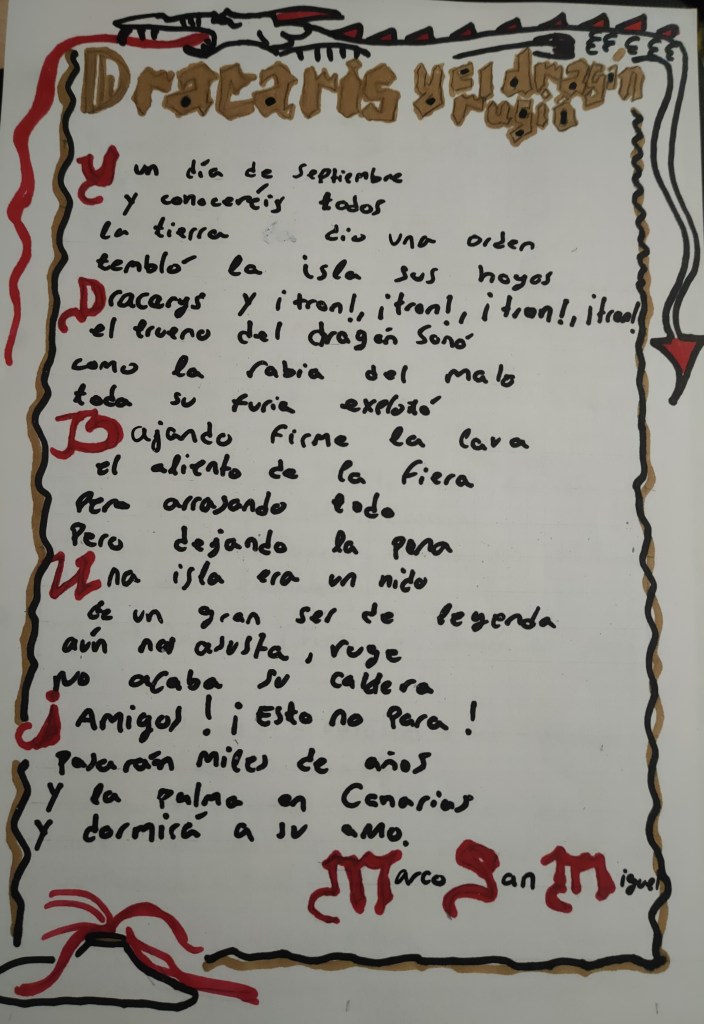 Dracaris y el dragón rugió
Y un día de septiembre
y conoceréis todos
la tierra dio una orden
tembló la isla sus hoyos
Dracarys y ¡tron!, ¡tron!, ¡tron!, ¡tron!
el trueno del dragón sonó
como la rabia del malo
toda su furia explotó
Bajando firme la lava
el aliento de la fiera
pero arrasando todo
Pero dejando la pena
Una isla era un nido
de un gran ser de leyenda
aún nos asusta, ruge
no acaba su caldera
¡Amigos! ¡Esto no para!
pasarán miles de años
y la palma en Canarias
y dormirá a su amo.
Marco San Miguel